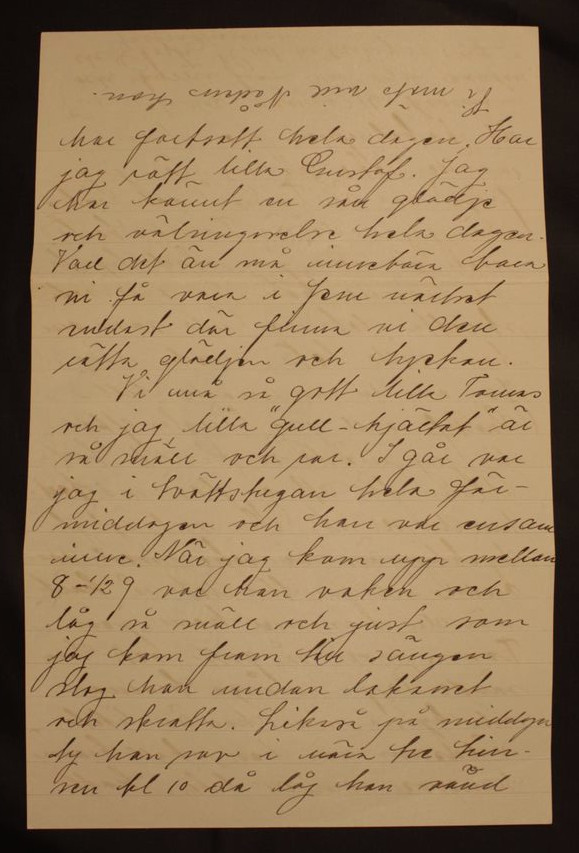 Vi möts vid Nådens tron.
har fortsatt hela dagen. Har
jag rätt lilla Gustaf. Jag
har känt en sån glädje
och välsignelse hela dagen.
Vad det än må innebära bara
vi få vara i Jesu närhet
endast där finna vi den
rätta glädjen och lyckan.
Vi må så gott lilla Tomas
och jag lilla "gull-hjärtat" är
så snäll och rar. I går var
jag i tvättstugan hela för-
middagen och han var ensam
inne. När jag kom upp mellan
8-1/2 9 var han vaken och
låg så snäll och just som
jag kom fram till sängen
slog han undan lakanet
och skratta. Likaså på middagen
ty han sov i nära tre tim-
mar kl 10 då låg han